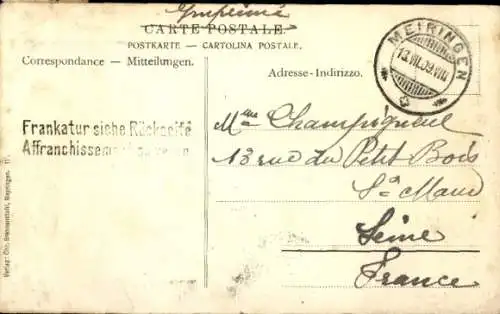 Imprimé
CARTE POSTALE.
POSTKARTE – CARTOLINA POSTALE.
Correspondance – Mitteilungen.
Adresse-Indirizzo.
MEIRINGEN
13.VII.09.VIII
Frankatur siehe Rückseite
Affranchissement
Mme Champigneul
13 rue du Petit Bois
St Maur
Seine
France
Verlag: Chr. Brennenstuhl, Meyringen.